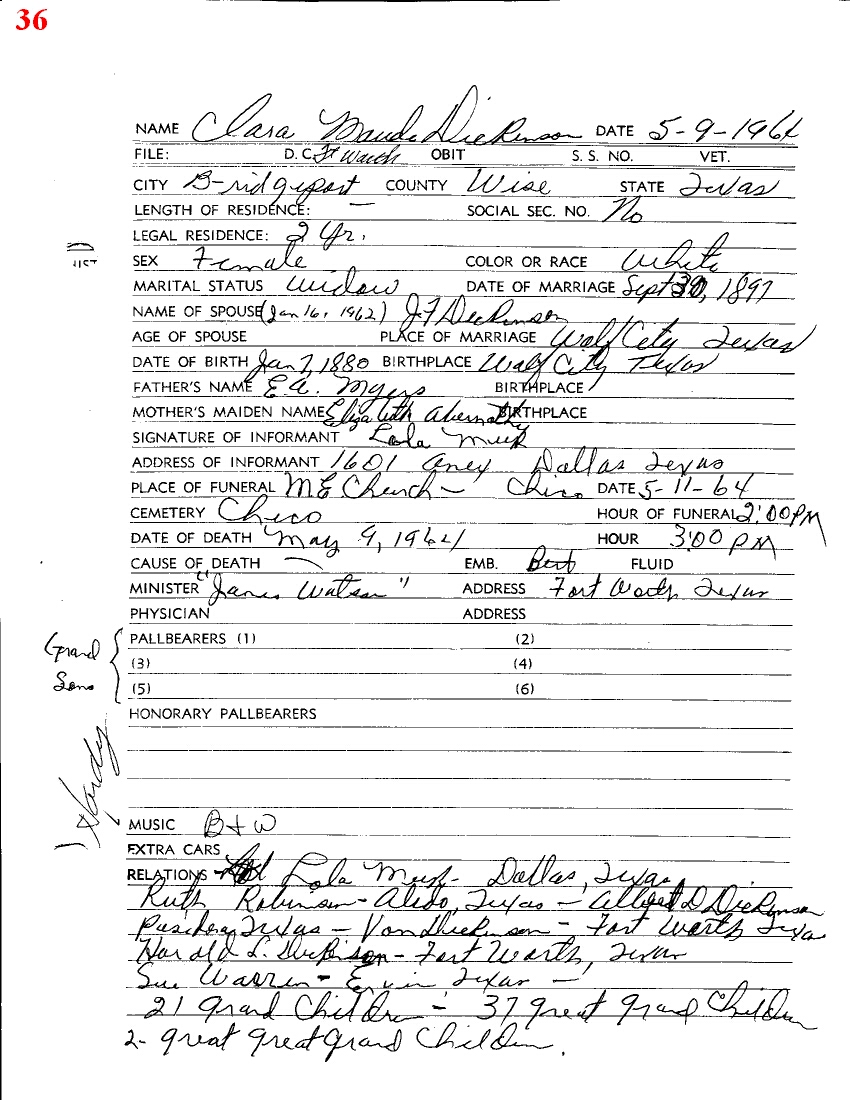 36
NAME Clara Maude Dickinson DATE 5-9-1964
FILE: D.C. Ft Worth OBIT S. S. NO. VET.
CITY Bridgeport COUNTY Wise STATE Texas
LENGTH OF RESIDENCE: — SOCIAL SEC. NO. No
LEGAL RESIDENCE: 2 Yr.
SEX Female COLOR OR RACE White
MARITAL STATUS Widow DATE OF MARRIAGE Sept 30, 1897
NAME OF SPOUSE (Jan 16, 1962) J.F. Dickinson
AGE OF SPOUSE PLACE OF MARRIAGE Wolf City Texas
DATE OF BIRTH Jan 7, 1880 BIRTHPLACE Wolf City Texas
FATHER'S NAME E.A. Myers BIRTHPLACE
MOTHER'S MAIDEN NAME Elizabeth Abernathy BIRTHPLACE
SIGNATURE OF INFORMANT Lola
ADDRESS OF INFORMANT 1601 Dallas Texas
PLACE OF FUNERAL M E Church - Chico DATE 5-11-64
CEMETERY Chico HOUR OF FUNERAL 2:00 PM
DATE OF DEATH May 9, 1964 HOUR 3:00 PM
CAUSE OF DEATH — EMB. FLUID
MINISTER "James Watson" ADDRESS Fort Worth Texas
PHYSICIAN ADDRESS
Grand
Sons
PALLBEARERS (1) (2)
(3) (4)
(5) (6)
HONORARY PALLBEARERS
Hardy
MUSIC B + W
EXTRA CARS
RELATIONS Lola - Dallas, Texas
Ruth Robinson - Aledo, Texas - D Dickinson
Texas - Von Dickinson - Fort Worth Texas
Harold L. Dickinson - Fort Worth, Texas
Sue Warren - Texas -
21 Grand Children - 37 great grand Children
2 - great great grand Children.